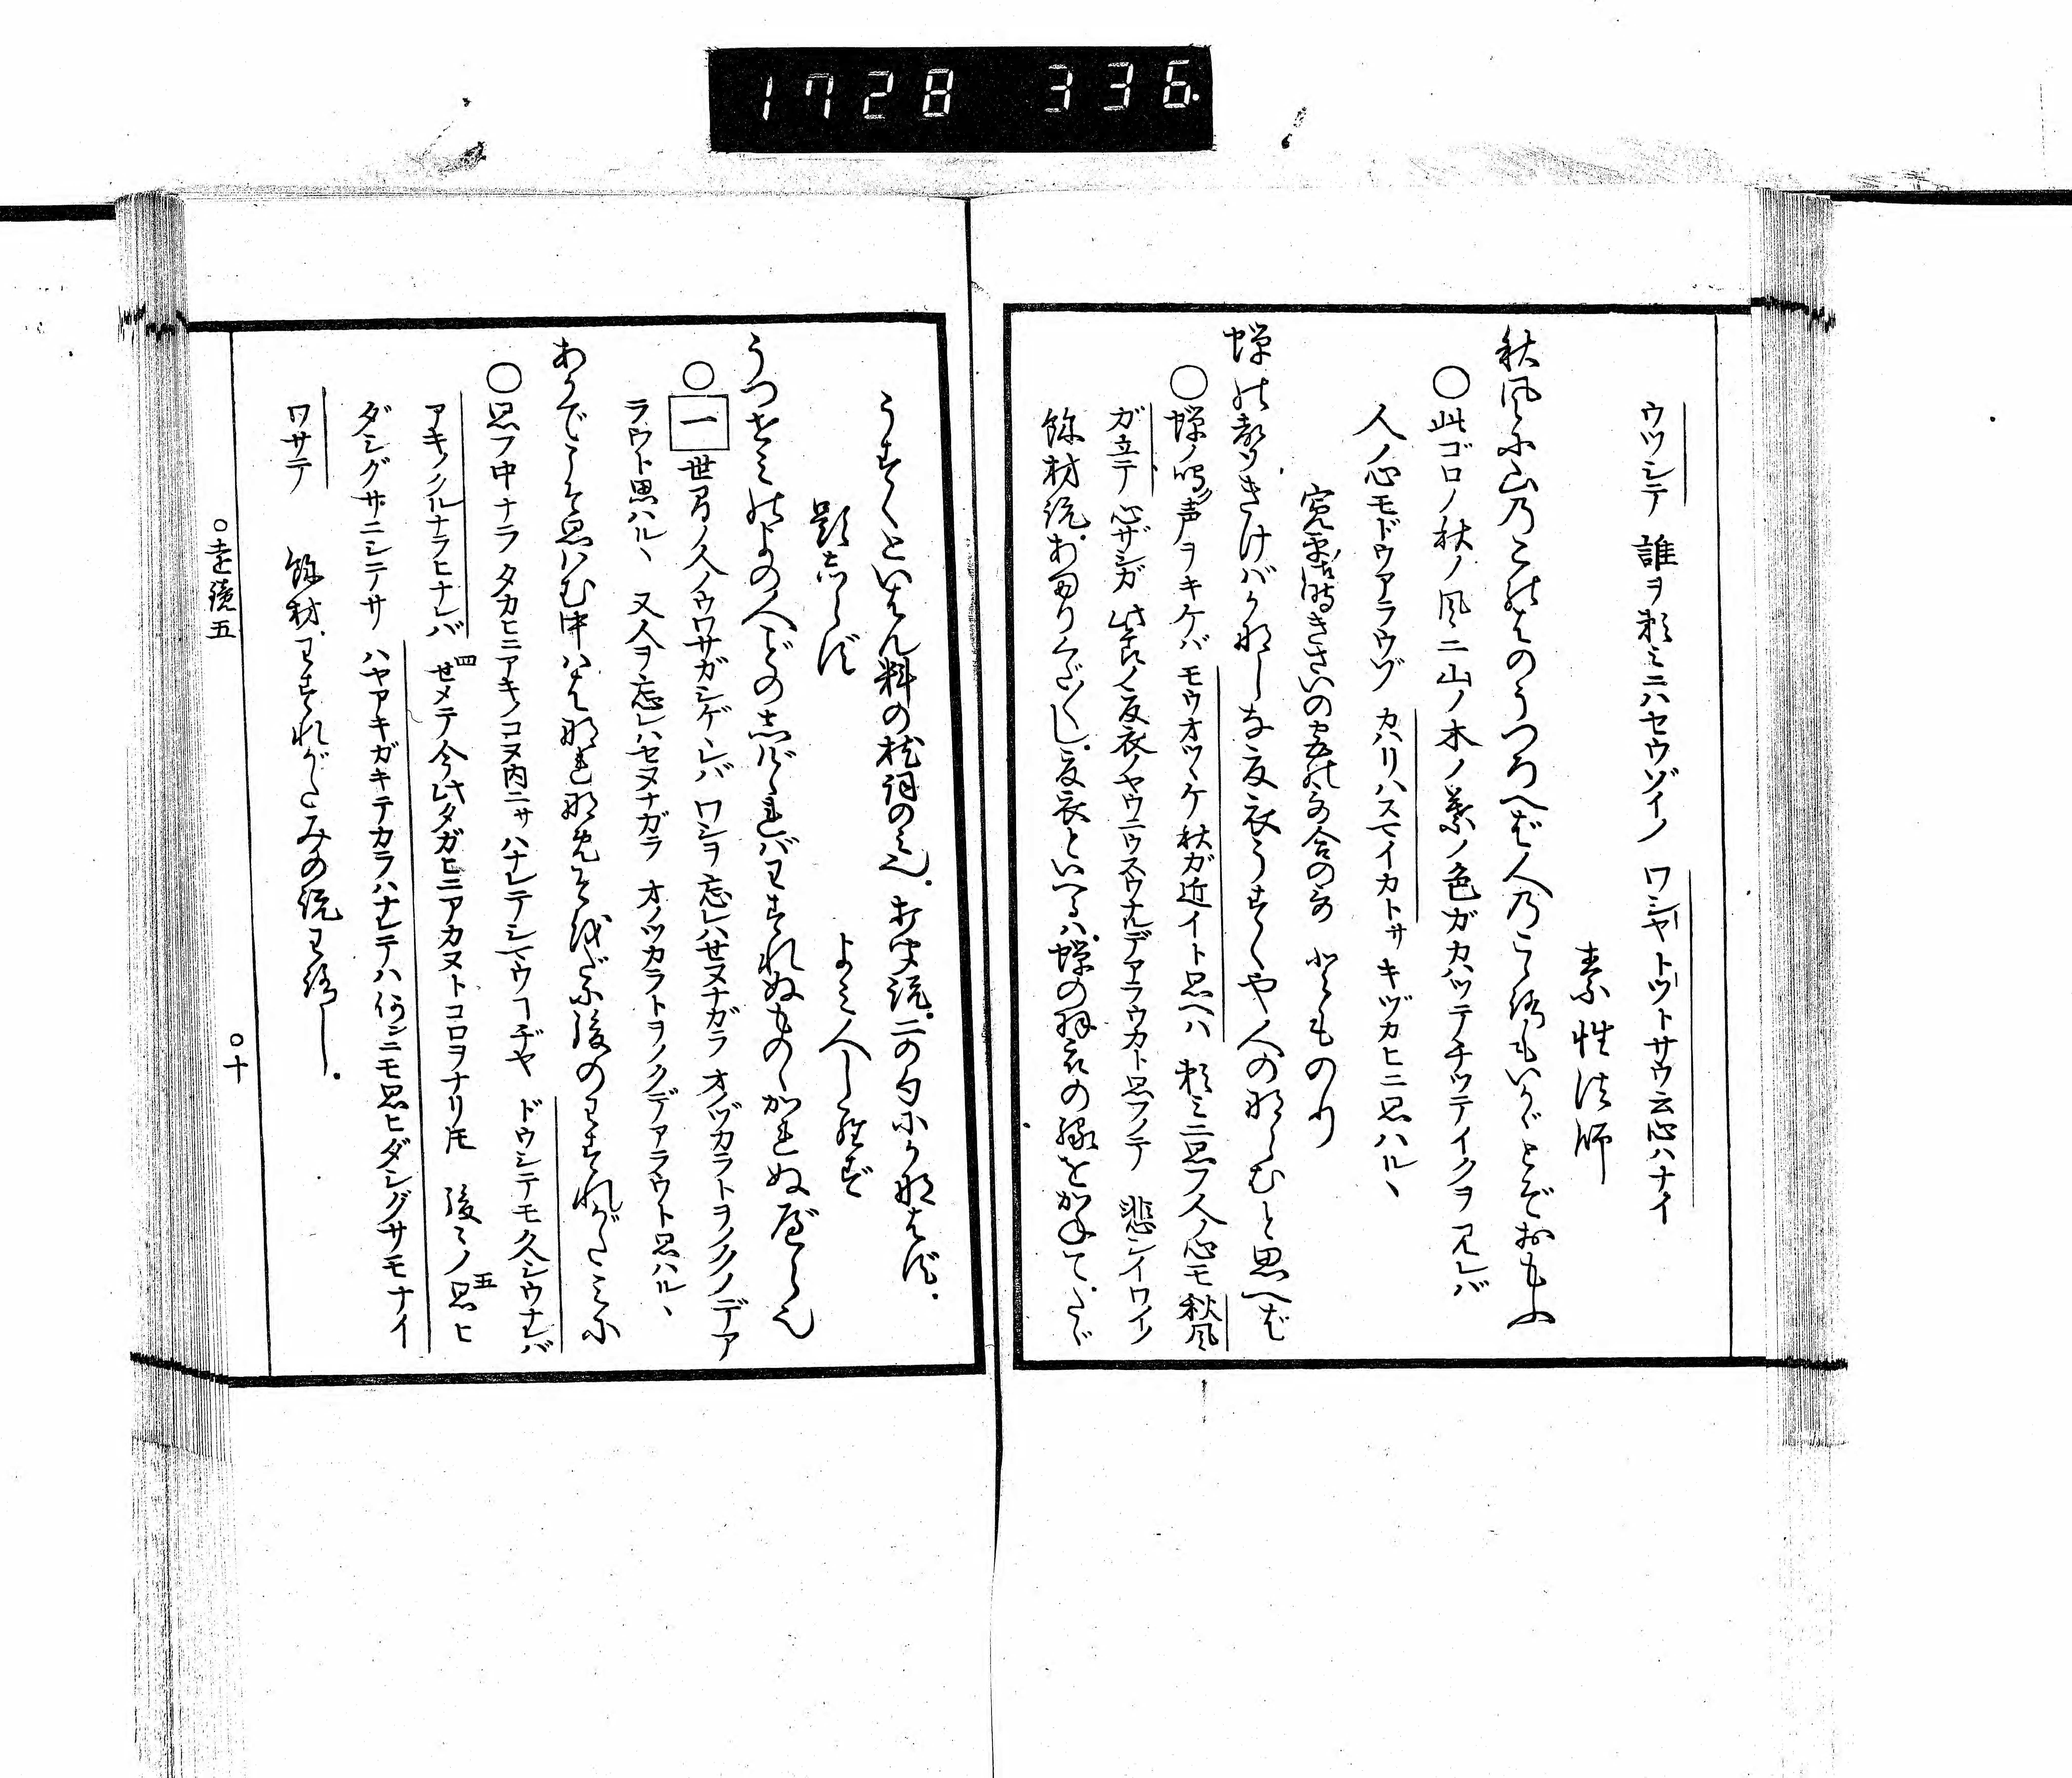 1728 336
ウツシテ 誰ヲ頼ミニハセウゾイノ ワシャトツトサウ云心ハナイ
素性法師
秋風に山のこのはのうつろへば人のこゝろもいかゞとぞおもふ
○此ゴロノ秋ノ風ニ山ノ木ノ葉ノ色ガカハツテチツテイクヲ見レバ
人ノ心モドウアラウゾ カハリハスマイカトサ キヅカヒニ思ハルヽ
寛平御時きさいの宮の歌合のうた とものり
蝉の声きけばかなしな夏衣うすくや人のならむと思へば
○蝉ノ鳴声ヲキケバ モウオツヽケ秋ガ近イト思ヘハ 頼ミニ思フ人ノ心モ秋風
ガ立テ 心ザシガ此ノ夏衣ノヤウニウスウナルデアラウカト思フテ 悲シイワイノ
餘材説わろりくだ〳〵し夏衣といへるハ蝉の羽衣の縁をかねてたゞ
うすくといはん料の枕詞のみ也打聞説二の句にかなはず
題しらず よみ人しらず
うつせみのよの人ごとのしげゝればわすれぬものゝかれぬべらなり
○一 世間ノ人ノウワサガシゲケレバ ワシヲ忘レハセヌナガラ オノヅカラトヲノクノデア
ラウト思ハルヽ 又人ヲ忘レハセヌナガラ オノツカラトヲノクデアラウト思ハルヽ
あかでこそ思はむ中ははなれなめそをだに後のわすれがたみに
○思フ中ナラ タカヒニアキノコヌ内ニサ ハナレテシマウコヂヤ ドウシテモ久シウナレバ
アキノクルナラヒナレバ 四せメテ今此タガヒニアカヌトコロヲナリトモ 後々ノ五思ヒ
ダシグサニシテサ ハヤアキガキテカラハナレテハ何ニモ思ヒダシグサモナイ
ワサテ 餘材わすれがたみの説わろし
○遠鏡五 ○十